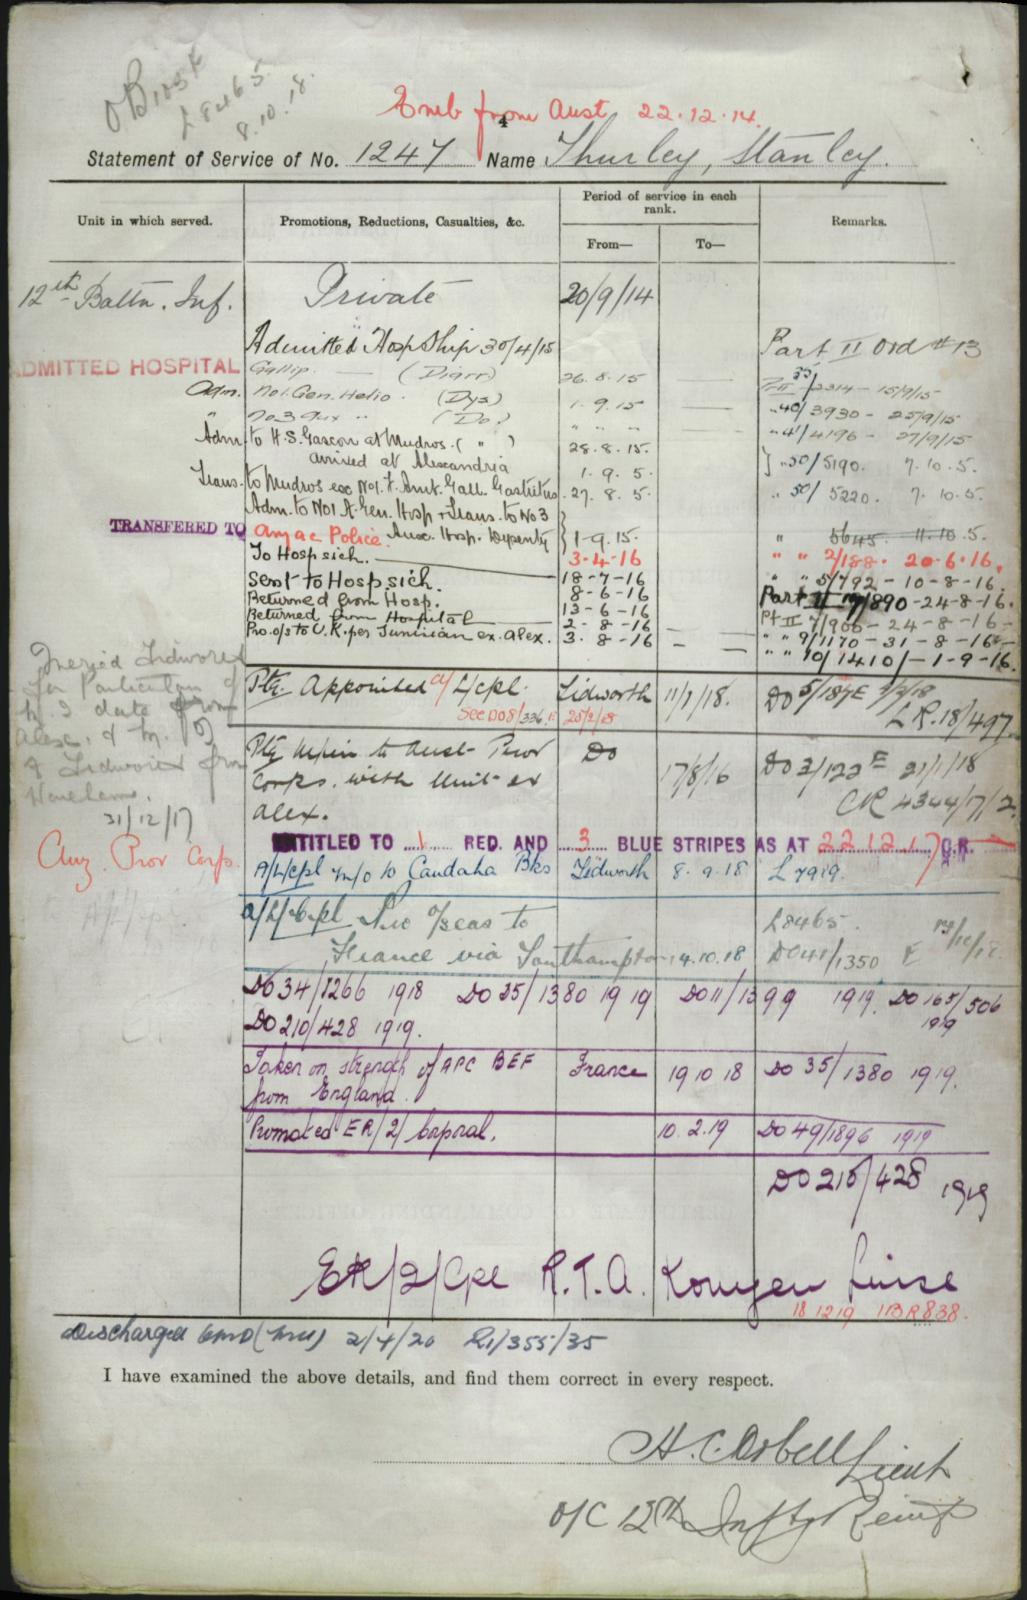 OB1034
L8465
8.10.18.
Emb from Aust 22.12.14.
4
Statement of Service of No. 1247 Name Thurley, Stanley.
Unit in which served. Promotions, Reductions, Casualties, &c. Period of service in each rank. Remarks.
From— To—
12th Battn. Inf. Private 20/9/14
Admitted Hosp Ship 30/4/15 Part II Ord # 13
ADMITTED HOSPITAL Gallip. — (Diarr) 26.8.15 2314 - 15/9/15
Adm. No1.Gen.Helio. (Dys) 1.9.15 " 40/3930 - 25/9/15
" No 3 Aux " (Do) " " " " 41/4196 - 27/9/15
Adm. to H.S. Gascon at Mudros. ( " ) 28.8.15.
arrived at Alexandria 1.9.5. } " 50/5190. 7.10.5.
Trans. to Mudros Gastritis 27.8.5. " 50/5220. 7.10.5.
Adm. to No1 A. Gen. Hosp & Trans. to No 3
Aux. Hosp. Dysenty } 1-9.15. " 5645. 11.10.5.
TRANSFERED TO Anzac Police. 3-4-16 " " 2/188. 20-6-16.
To Hosp sick. 18-7-16 " " 5/792 - 10-8-16.
Sent to Hosp sick. 8-6-16 Part II 890 - 24-8-16.
Returned from Hosp. 13-6-16 Pt II 7/906 - 24-8-16
Returned from Hospital 2-8-16 " " 9/1170 - 31-8-16
Pro. o/s to U.K. per Tunisian ex. Alex. 3.8-16 " " 10/1410/ - 1-9-16.
Pte. Appointed a/ L/cpl. Tidworth 11/1/18. DO 5/187E
See DO 8/336 E 25/2/18 L R.18/497.
31/12/17
Pte to Aust Prov Do 17/8/16 DO 3/122 E 21/1/18
Corps. with Unit ex CR 4344/17/2.
Alex.
Anz. Prov Corps.
ENTITLED TO 1 RED. AND 3 BLUE STRIPES AS AT 22.12.17 C.R.
A/L/cpl m/o to Candaha Bks Tidworth 8.9.18 L 7919.
a/L/Cpl Pro o/seas to L8465.
France via Southampton 14.10.18 DO41/1350 E
DO 34/1266 1918 DO 35/1380 1919 DO 11/1399 1919. DO 165/506 1919
DO 210/428 1919.
Taken on strength of APC BEF France 19 10 18 DO 35/1380 1919.
from England.
Promoted ER/2/Corporal. 10.2.19 DO 49/1896 1919
DO 215/428 1919
ER/2/Cpl R.T.A.
18 12 19 113 R 838.
Discharged 2/4/20 21/355/35
I have examined the above details, and find them correct in every respect.
Lieut
O/C 12th Infty Reinfs